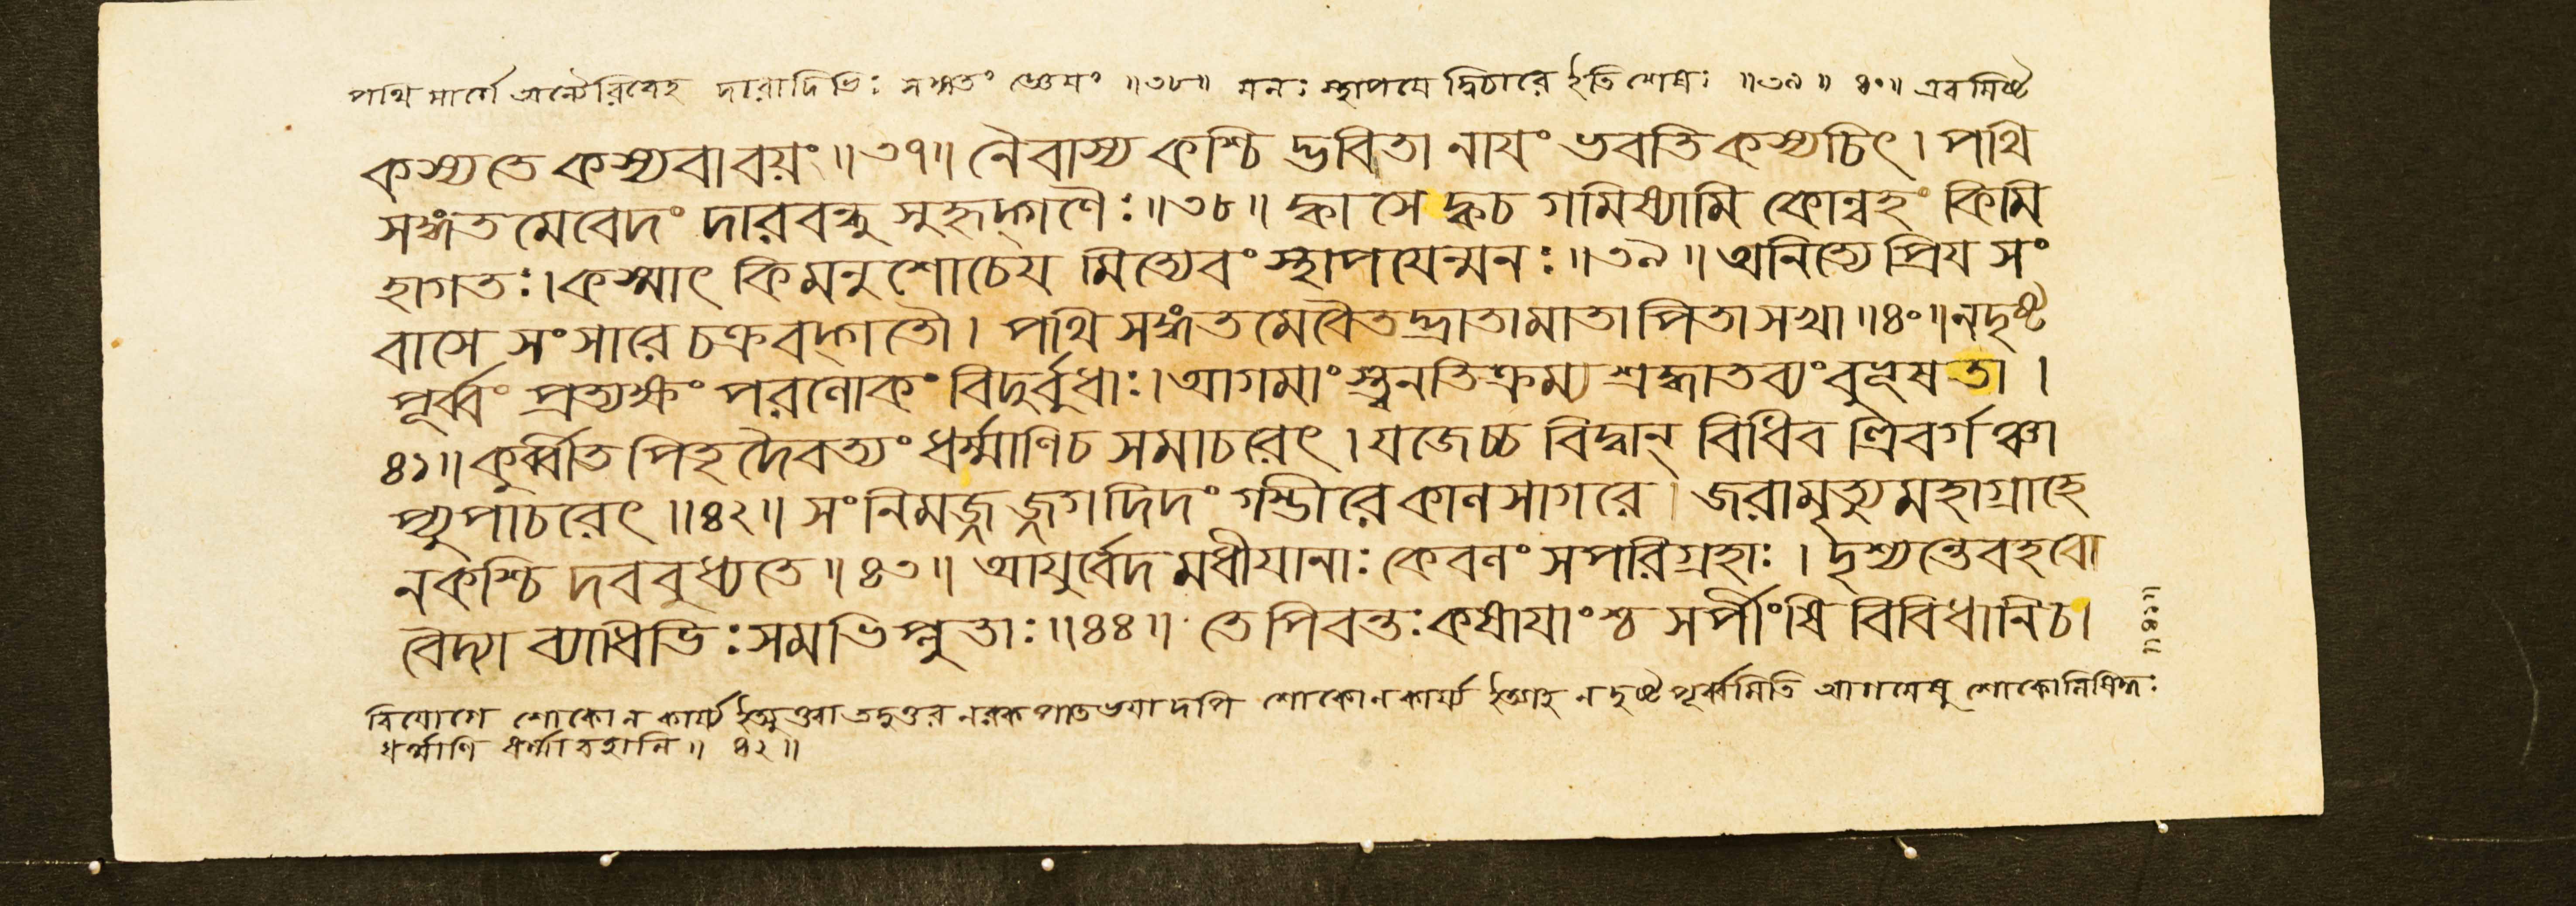 পথি মার্গে অন্যৈরিবেহ দারাদিভিঃ সঙ্গতং জ্ঞেয়ং ॥৩৮॥ মনঃ স্থাপযে দ্বিচারে ইতি শেষঃ ॥৩৯॥ ৪০॥ এবমিষ্ট
কস্য তে কস্যবাবয়ং॥৩৭॥ নৈবাস্য কশ্চি দ্ভবিতা নাযং ভবতি কস্যচিৎ। পথি
সঙ্গত মেবেদং দারবন্ধু সুহৃদ্গণৈঃ॥৩৮॥ ক্বাসে ক্বচ গমিষ্যামি কোন্বহং কিমি
হাগতঃ। কস্মাৎ কিমনুশোচেয মিত্যেবং স্থাপযেন্মনঃ॥৩৯॥ অনিত্যে প্রিয সং
বাসে সংসারে চক্রবদ্গতৌ। পথি সঙ্গত মেবৈতদ্ভ্রাতামাতা পিতা সখা॥৪০॥ নদৃষ্ট
পূর্ব্বং প্রত্যক্ষং পরলোকং বিদুর্বুধাঃ। আগমাংস্ত্বনতিক্রম্য শ্রদ্ধাতব্যং বুভূষতা।
৪১॥ কুর্ব্বীত পিতৃদৈবত্যং ধর্ম্মাণিচ সমাচরেৎ। যজেচ্চ বিদ্বান্ বিধিব ত্ত্রিবর্গঞ্চা
প্যুপাচরেৎ॥৪২॥ সংনিমজ্জ জ্জগদিদং গম্ভীরে কালসাগরে। জরামৃত্যু মহাগ্রাহে
নকশ্চি দববুধ্যতে॥৪৩॥ আযুর্বেদ মধীযানাঃ কেবলং সপরিগ্রহাঃ। দৃশ্যন্তেবহবো
বৈদ্যা ব্যাধিভিঃ সমভিপ্লুতাঃ॥৪৪॥ তে পিবন্তঃ কষাযাংশ্চ সর্পীংষি বিবিধানিচ।
বিযোগে শোকো ন কার্য্য ইত্যুক্ত্বা তদুত্তর নরকপাতভযাদপি শোকোনকার্য্য ইত্যাহ নদৃষ্টপূর্ব্বমিতি আগমেষু শোকোনিষিদ্ধঃ
ধর্ম্মাণি ধর্ম্মাবহানি॥ ৪২॥